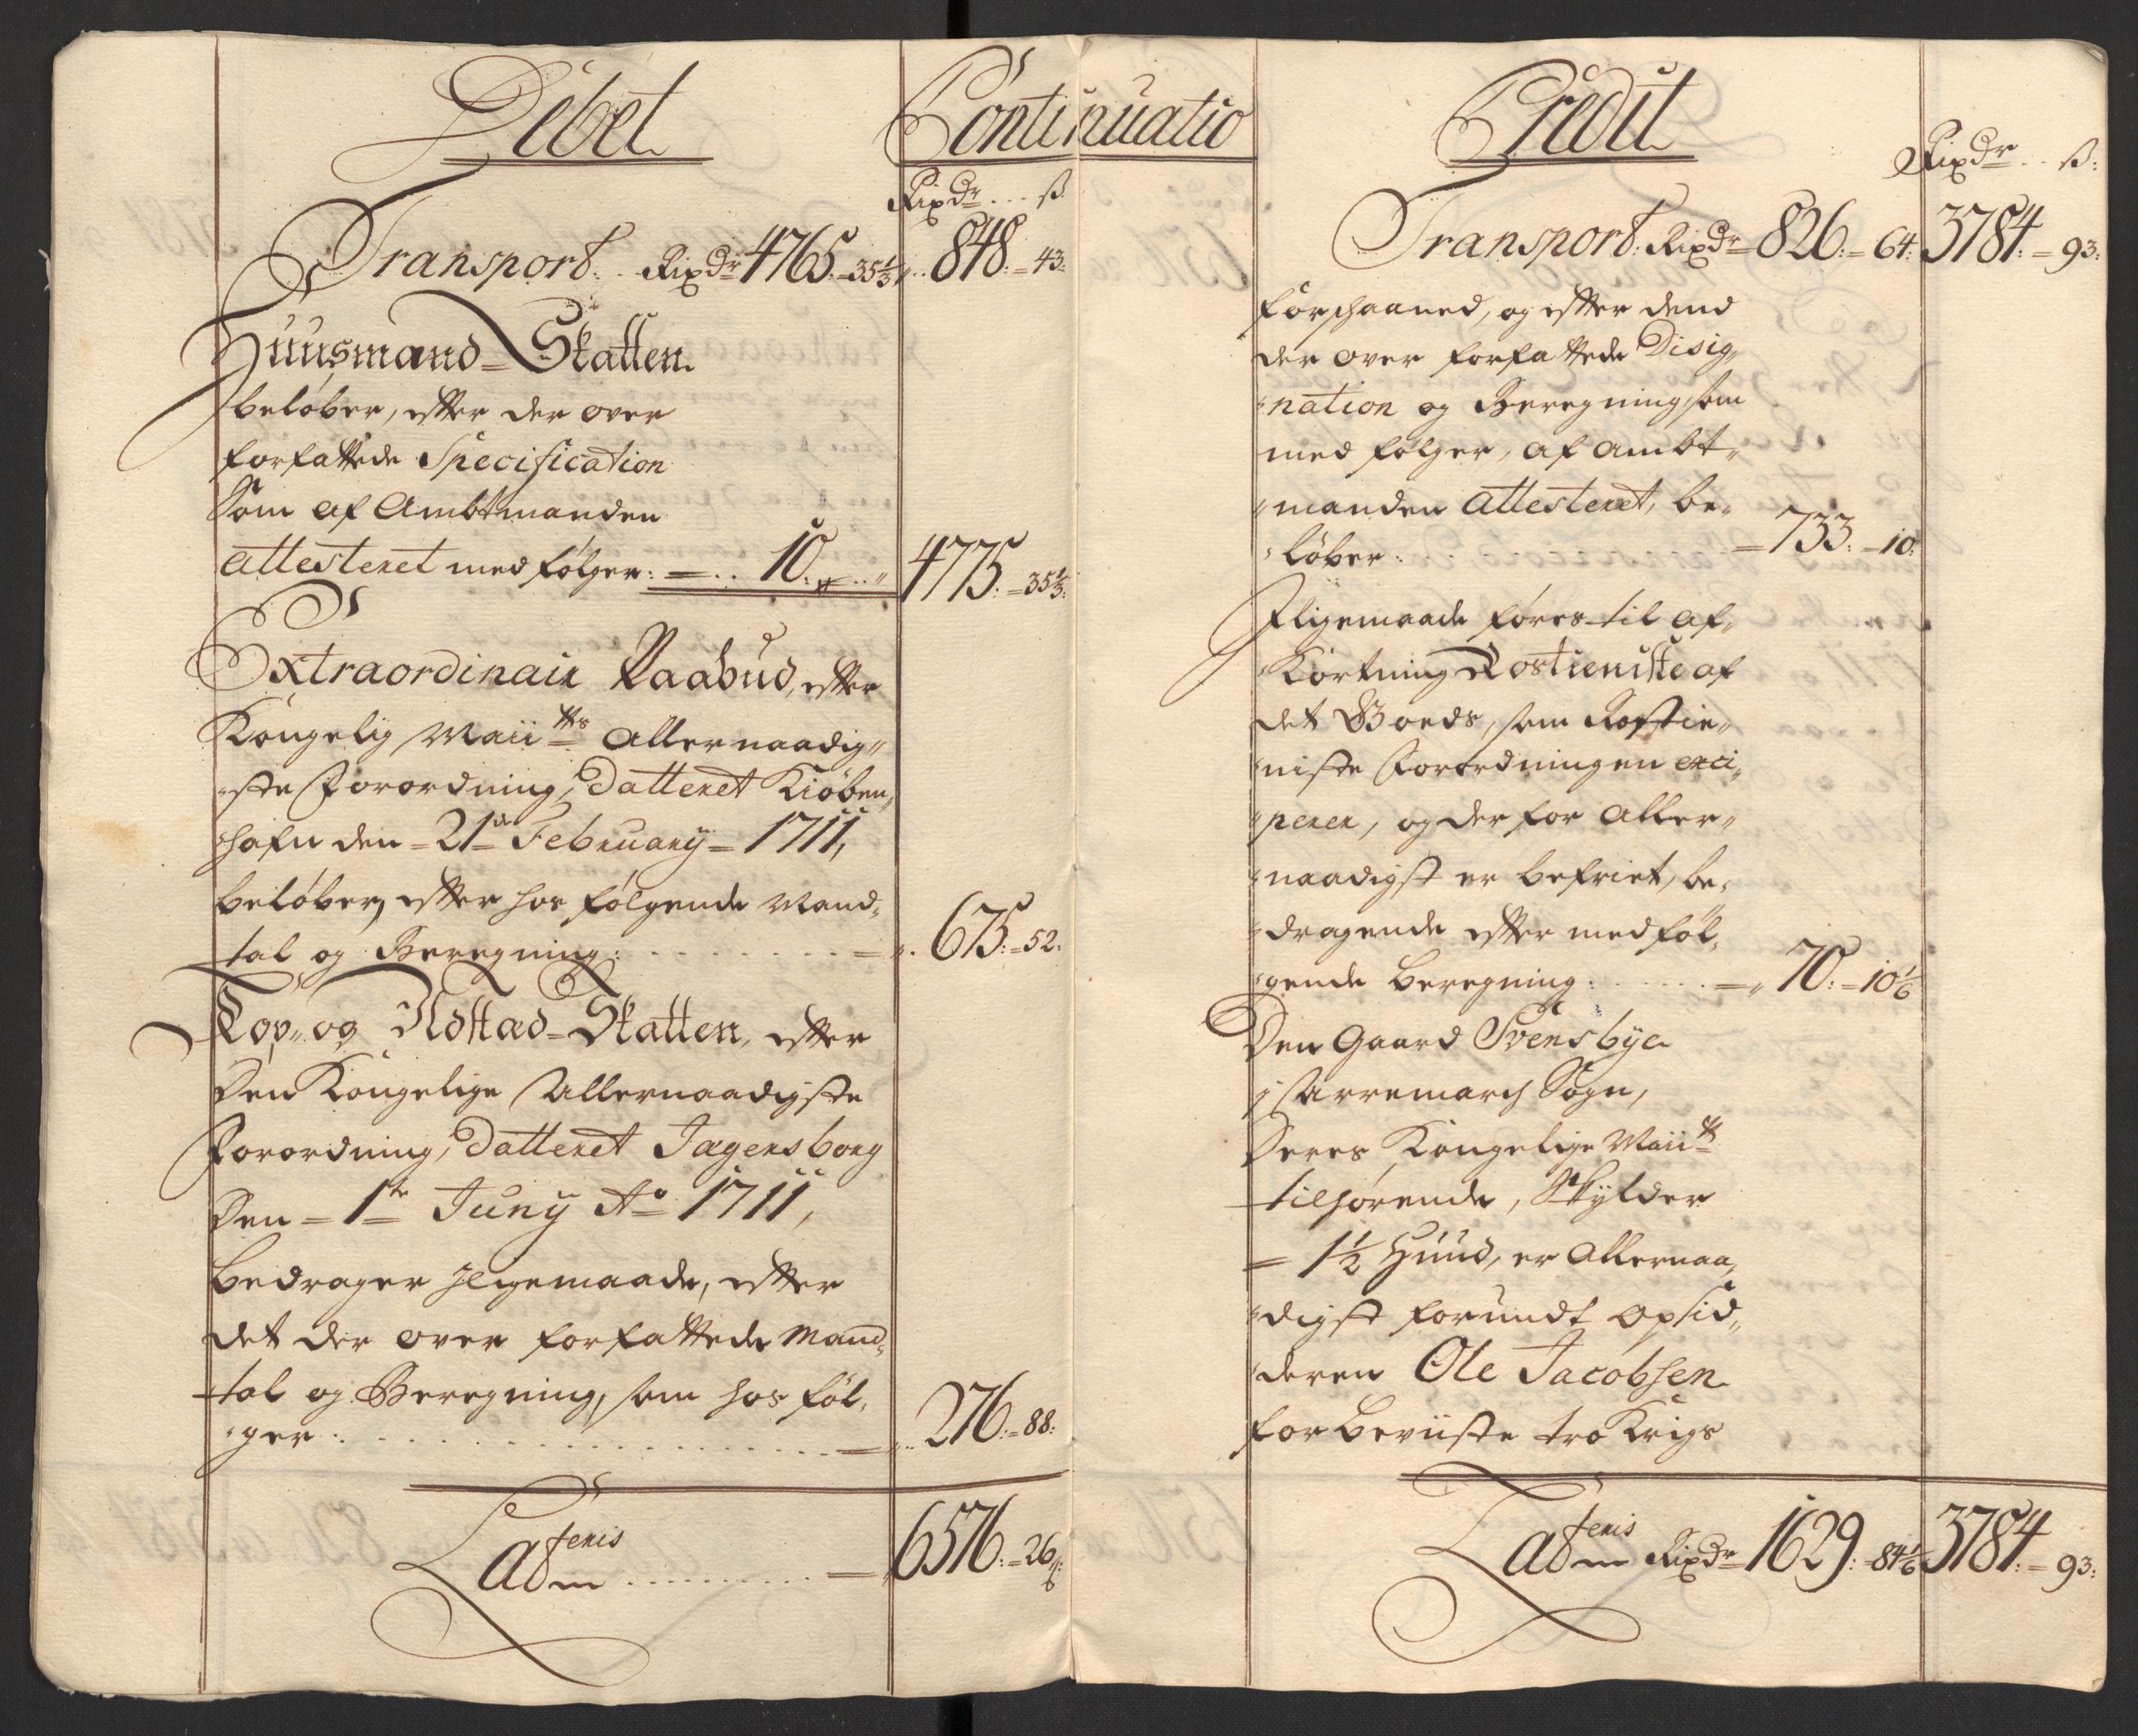 Debet Continuatio
Rixdr ... ß
Transport. Rixdr 4765 = 35 1/3 848 = 43:
Huusmand-Skatten.
beløber, efter der over
forfattede Specification
Som af Ambtmanden
attesteret med følger: = .. 10. " .. " 4775. = 35 1/3:
Extraordinair Paabud, efter
Kongelig Maii tts Allernaadig„
„ste Forordning, Datteret Kiøben„
hafn den = 21de February = 1711,
beløber, efter hos følgende Mand„
tal og Beregning: . . . . . = „. 675. = 52.
Kop- og Ildsted-Skatten, efter
Den Kongelige Allernaadigste
Forordning, Datteret Jagersborg
Den = 1te Juny Ao 1711,
bedrager jligemaade, efter
det der over forfattede Mand„
tal og Beregning, som hos føl„
„ger . . . . . . = „. 276. = 88.
Lateris . . . . . = 6576. = 26
Credit
Rixdr .. ß:
Transport. Rixdr = 826. = 64. 3784. = 93.
forschaaned, og efter dend
der over forfattede Disig„
„nation og Beregning, som
med følger, af Ambt„
„manden attesteret, be„
„løber: . . . = 733. = 10.
Jligemaade føres til af„
Kortning Rostieniste af
det Goeds, som Rostie„
„niste Forordningen exci„
„perer, og der for aller„
„naadigst er befriet, be„
„dragende efter med føl„
„gende beregning: . . . = „ 70. = 10 1/6
Den Gaard Svensbye
j Arremarch Sogn,
Deres Kongelige Maii tt
tilhørende, Skylder
= 1 1/2 Huud, er Allernaa„
„digst forundt Opsid„
„deren Ole Jacobsen
for beviiste tro Krigs
Lateris Rixdr = 1629. = 84 1/6 3784. = 93.